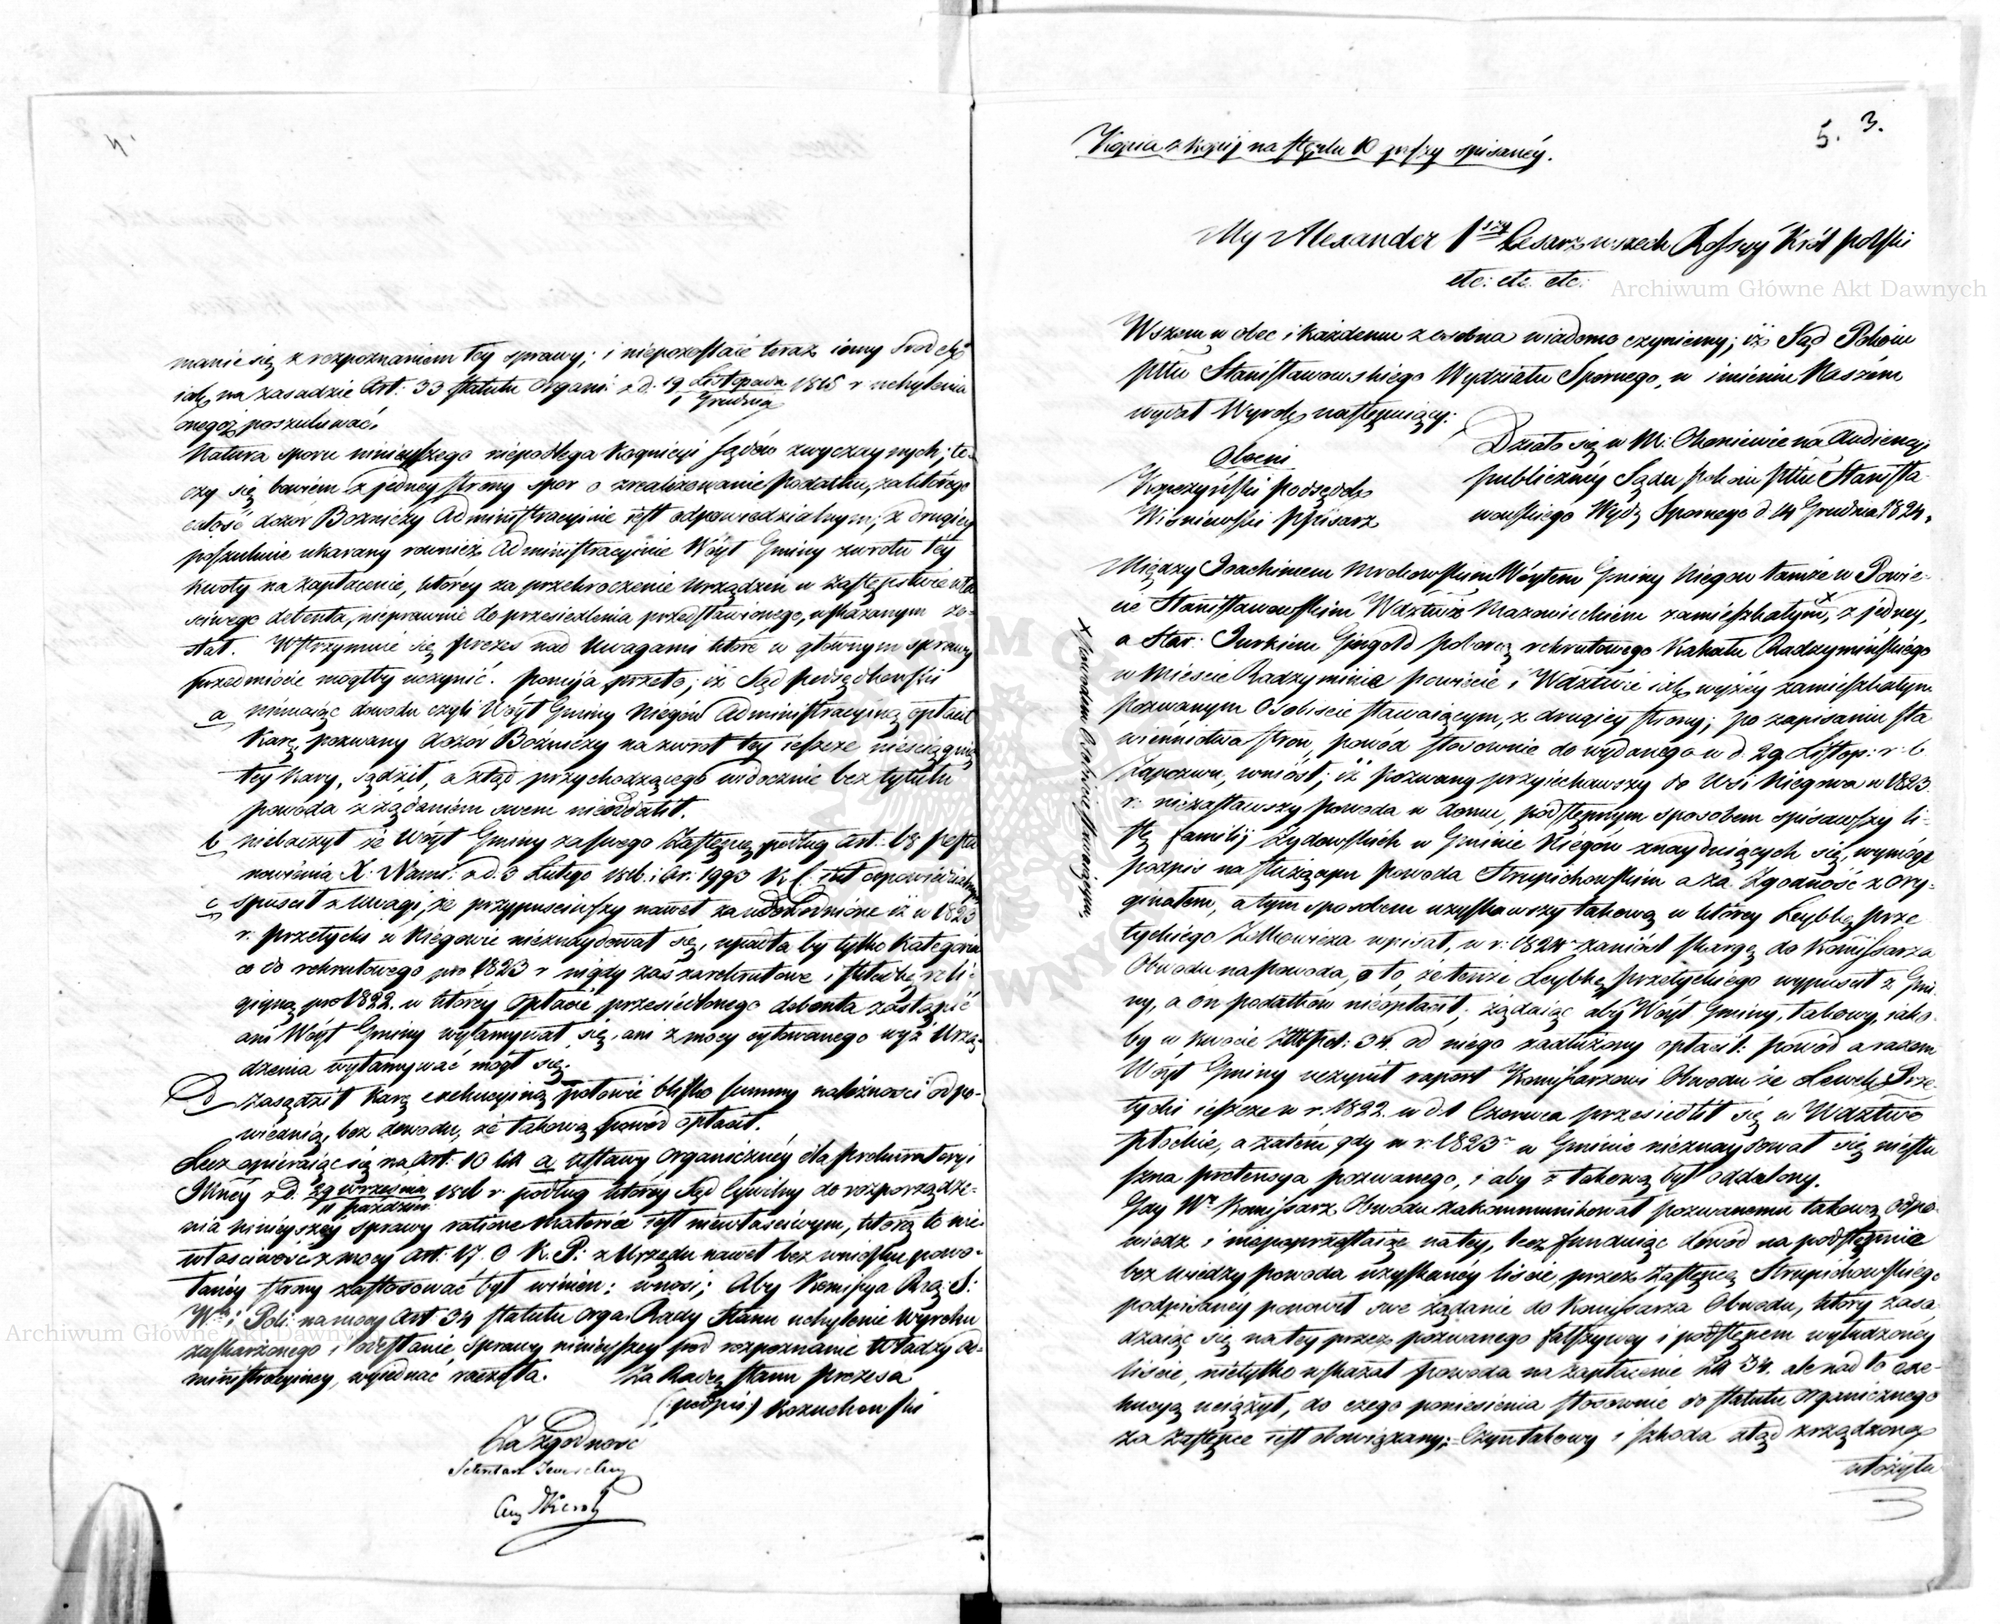 4.
manie się z rozpoznaniem tey sprawy; i niepozostaie teraz iemy środek
iak na zasadzie Art: 33 Statutu Organi: z d: 19 Listopada / 1 Grudnia 1815 r uchylenia
onegoż poszukiwać.
Natura sporu ninieyszego niepodlega Kognicyi Sądów zwyczaynych; to-
czy się bowiem z jedney strony spor o zrealizowanie podatku, za którego
całość dozór Bożniczy Administracyinie jest odpowiedzialnym; z drugiey
poszukuie ukarany rownież Administracyinie Wóyt Gminy zwrotu tey
kwoty na zapłacenie, którey za przekroczenie Urządzeń w zastępstwie wła-
ściwego debenta, nieprawnie do przesiedlenia przedstawionego, wskazanym zo-
stał. Wstrzymuie się Prezes nad Uwagami które w głównym sprawy
przedmiocie mogłby uczynić. Pomija przeto; iż Sąd podsędkowski
a niemaiąc dowodu czyli Wóyt Gminy Niegów Administracyiną opłacił
Karę, pozwany dozór Bożniczy na zwrot tey ieszcze nieściągnię
tey Kary, sądził, a ztąd przychodzącego widocznie bez tytułu
powoda z żądaniem swem nieoddalił.
b niebaczył że Wóyt Gminy za swego Zastępcę podług Art: 18 posta
nowienia X: Nams: z d. 3 Lutego 1816. i Ar: 1993 K. C. iest odpowiedzialnym
c spuścił z Uwagi, że przypuściwszy nawet za udowodnione iż w 1823
r. Przetycki w Niegowie nieznaydował się, upadła by tylko Kategoria
co do rekrutowego pro 1823 r nigdy zaś zarekrutowe i składkę reli-
giyną pro 1822. w którey opłacie przesiedlonego debenta zastąpić
ani Wóyt Gminy wyłamywał się, ani z mocy cytowanego wyż Urzą-
dzenia wyłamywać mógł się.
d zasądził Karę exekucyiną połowie blisko summy należności odpo-
wiednią, bez dowodu, że takową powód opłacił.
Lecz opieraiąc się na Art: 10 lit a, Ustawy Organiczney dla Prokuratoryi
Jlney z d. 29 Września / 11 Paździer: 1816 r. podług którey Sąd Cywilny do rozporządze-
nia ninieyszey sprawy ratione materiae iest niewłaściwym, którą to nie-
właściwość z mocy Art: 17. O. K. P: z Urzędu nawet bez wniosku powo-
łaney strony zastosować był winien: wnosi; Aby Komisya Rzą: S:
W: i Poli: na mocy Art 34 Statutu Orga: Rady Stanu uchylenie Wyroku
zaskarżonego i odesłanie sprawy ninieyszey pod rozpoznanie Władzy ad-
ministracyiney, wyiednać raczyła. Za Radcę Stanu Prezesa
(podpis:) Kożuchowski
Za Zgodność
5. 3.
Kopia z kopij na stęplu 10 groszy spisaney.
My Alexander 1szy Cesarz wszech Rossyy Król Polski
etc: etc. etc:
Wszem w obec i każdemu z osobna wiadomo czyniemy; iż Sąd Pokoiu
Pttu Stanisławowskiego Wydziału Spornego, w imieniu Naszém
wydał Wyrok następuiący:
Działo się w M: Okoniewie na Audiencyi
publiczney Sądu Pokoiu Pttu Stanisła-
wowskiego Wydz Spornego d 14 Grudnia 1824.
Obecni
Krpczyński podsędek
Wiśniewski Ppisarz
Między Joachimem Mrokowskim Wóytem Gminy Niegow tamże w Powie-
cie Stanisławowskim Wdztwie Mazowieckiem zamieszkałym x, z jedney,
x powodem Osobiście stawaiącym
a Star: Jurkiem Gingold poborcą rekrutowego Kahału Radzymińskiego
w Mieście Radzyminie powiecie i Wdztwie iak wyżey zamieszkałym
Pozwanym Osobiście stawaiącym, z drugiey strony; po zapisaniu sta-
wiennictwa stron, powód stosownie do wydanego w d. 29 Listop: r. b.
Zapozwu, wniósł; iż pozwany przyiechawszy do Wsi Niegowa w 1823.
r. niezastawszy powoda w domu, podstępnym sposobem spisawszy li-
stę familij Żydowskich w Gminie Niegów znayduiących się, wymógł
podpis na służącym powoda Strupichowskim a za Zgodność z ory-
ginałem, a tym sposobem uzyskawszy takową w którey Leybkę Prze
tyckiego Zelkowicza wpisał, w r: 1824 zaniósł skargę do Komissarza
Obwodu na powoda, o to, że tenże Leybkę Przetyckiego wypuścił z Gmi-
ny, a on podatków nieopłacił; żądaiąc aby Wóyt Gminy, takowy, iako-
by w kwocie Złtpol: 34. od niego zadłużony opłacił: powód a razem
Wóyt Gminy uczynił raport Komissarzowi Obwodu że Lewek Prze-
tycki ieszcze w r: 1822. w d. 1 Czerwca przesiedlił się w Wdztwo
Płockie, a zatém gdy w r. 1823 w Gminie nieznaydował się niesłu
szna pretensya pozwanego, i aby z takową był oddalony.
Gdy W. Komissarz Obwodu zakommunikował pozwanemu takową odpo-
wiedz i niepoprzestaiąc na tey, lecz funduiąc dowód na podstępnie
bez wiedzy powoda uzyskaney liście przez Zastępcę Strupichowskiego
podpisaney ponowił swe żądanie do Komissarza Obwodu, który zasa-
dzaiąc się na tey przez pozwanego fałszywey i podstępem wyłudzoney
liście, nietylko wskazał powoda na zapłacenie Zł 34. ale nad to exe-
kucyą uciążył, do czego poniesienia stosownie do Statutu Organicznego
za Zastępce iest obowiązany; Czyn takowy i szkoda ztąd zrządzona
Archiwum Główne Akt Dawnych
Archiwum Główne Akt Dawnych